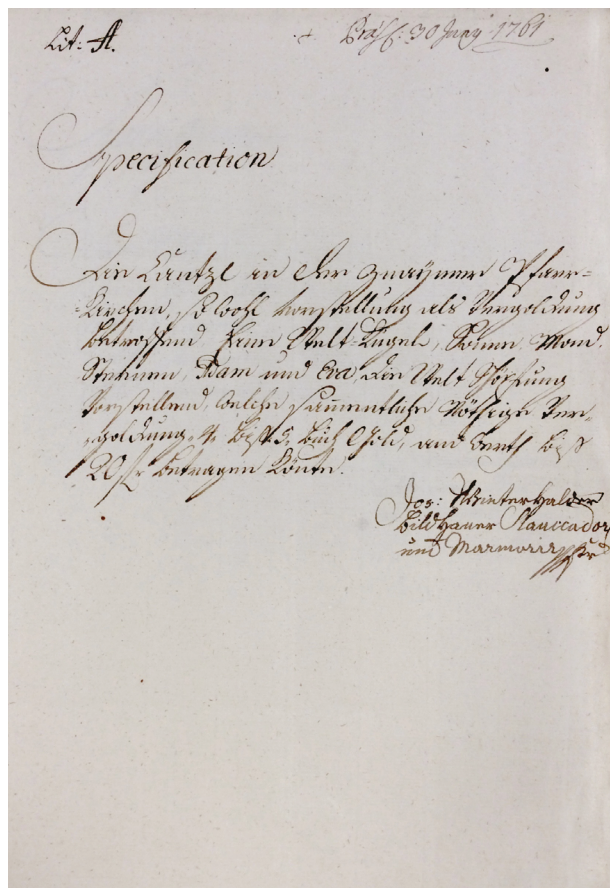 Lit: A.
Präs: 30 Juny 1761
Specification
Die Cantzl in der Znaymer Pfarr=
Kirchen, so wohl Vorstellung als Vergoldung
betreffend, Eine Welt=Kugel, Sonne, Mond,
Sternen, Adam und Eva, die Welt Schöpfung
Vorstellend, welche sammentliche Nöthige Ver=
goldung 4 biß 5 Buch Gold, am werth biß
20 fr betragen könte.
Jos: Winterhalder
bildhauer Stuccador
und Marmorir